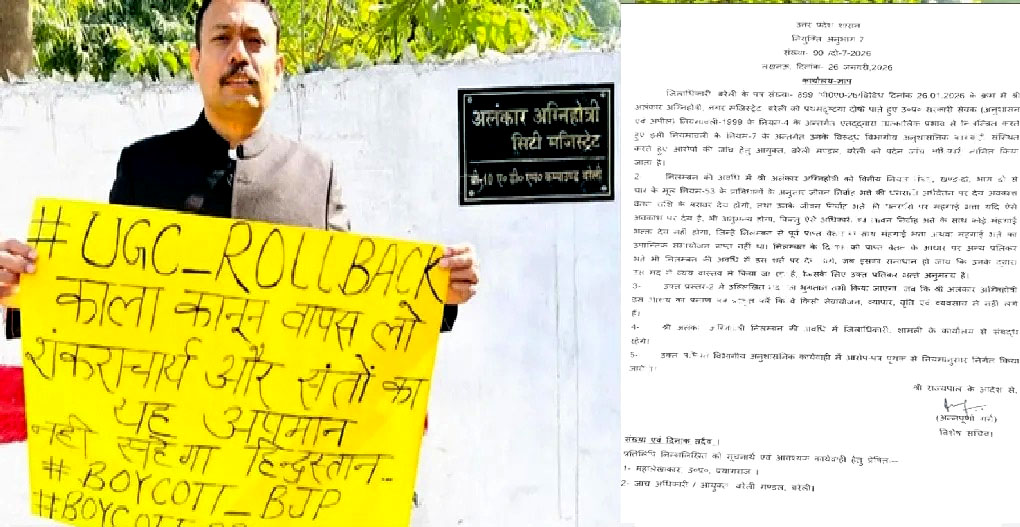 अलंकार अग्निहोत्री
सिटी मजिस्ट्रेट
डी-10 ए० डी० एम० कम्पाउण्ड बरेली
#UGC_ROLLBACK
काला कानून वापस लो
शंकराचार्य और संतों का
यह अपमान
नही सहेगा हिन्दुस्तान...
#BOYCOTT_BJP
#BOYCOTT
उत्तर प्रदेश शासन
नियुक्ति अनुभाग 7
संख्या- 90 /दो-7-2026
लखनऊ, दिनांक- 26 जनवरी,2026
कार्यालय-ज्ञाप
जिलाधिकारी बरेली के पत्र संख्या- 899 दिनांक 26.01.2026 के क्रम में श्री
अलंकार अग्निहोत्री, नगर मजिस्ट्रेट बरेली को प्रथमदृष्टया दोषी पाते हुए उ0प्र0 सरकारी सेवक (अनुशासन
एवं अपील) नियमावली-1999 के नियम-4 के अन्तर्गत एतद्द्वारा तात्कालिक प्रभाव से निलम्बित करते
हुए इसी नियमावली के नियम-7 के अन्तर्गत उनके विरूद्ध विभागीय अनुशासनिक संस्थित
करते हुए आरोपों की जांच हेतु आयुक्त, बरेली मण्डल, बरेली को पदेन जांच नामित किया
जाता है।
2 निलम्बन की अवधि में श्री अलंकार अग्निहोत्री को वित्तीय नियम खण्ड-दो, भाग दो से
चार के मूल नियम-53 के प्राविधानों के अनुसार जीवन निर्वाह भत्ते की धनराशि अर्धवेतन पर देय अवकाश
वेतन राशि के बराबर देय होगी, तथा उनके जीवन निर्वाह भत्ते की धनराशि पर महंगाई भत्ता यदि ऐसे
अवकाश पर देय है, भी अनुमन्य होगा, किन्तु ऐसे अधिकारी जीवन निर्वाह भत्ते के साथ कोई महंगाई
भत्ता देय नहीं होगा, जिन्हें निलम्बन से पूर्व प्राप्त वेतन के साथ महंगाई भत्ता अथवा महंगाई भत्ते का
उपान्तिक समायोजन प्राप्त नहीं था। निलम्बन के दिनांक को प्राप्त वेतन के आधार पर अन्य प्रतिकर
भत्ते भी निलम्बन की अवधि में इस शर्त पर देय होंगे, जब इसका समाधान हो जाय कि उनके द्वारा
उस मद में व्यय वास्तव में किया जा रहा है, जिसके लिए उक्त प्रतिकर भत्ते अनुमन्य है।
3- उक्त प्रस्तर-2 में उल्लिखित मद का भुगतान तभी किया जाएगा जब कि श्री अलंकार अग्निहोत्री
इस आशय का प्रमाण पत्र प्रस्तुत करें कि वे किसी सेवायोजन, व्यापार, वृत्ति एवं व्यवसाय में नही लगे
हैं।
4- श्री अलंकार अग्निहोत्री निलम्बन की अवधि में जिलाधिकारी, शामली के कार्यालय से संबद्ध
रहेंगे।
5- उक्त प्रकरण विभागीय अनुशासनिक कार्यवाही में आरोप-पत्र पृथक से नियमानुसार निर्गत किया
जाएगा।
श्री राज्यपाल के आदेश से,
(अन्नपूर्णा गर्ग)
विशेष सचिव।
संख्या एवं दिनांक तदैव।
प्रतिलिपि निम्नलिखित को सूचनार्थ एवं आवश्यक कार्यवाही हेतु प्रेषित:—
1- महालेखाकार, उ०प्र०, प्रयागराज।
2- जांच अधिकारी / आयुक्त बरेली मण्डल, बरेली।